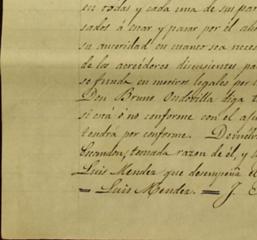 en todas y cada una de sus par
sados á estar y pasar por él aho
su autoridad en cuanto sea neces
de los acreedores disidentes pa
se funda en motivos legales por
Don Bruno Ondovilla diga
si está ó no conforme con el aju
tendrá por conforme.
tomada razon de él, y
Luis Mendez que desempeña el
Luis Mendez. J.